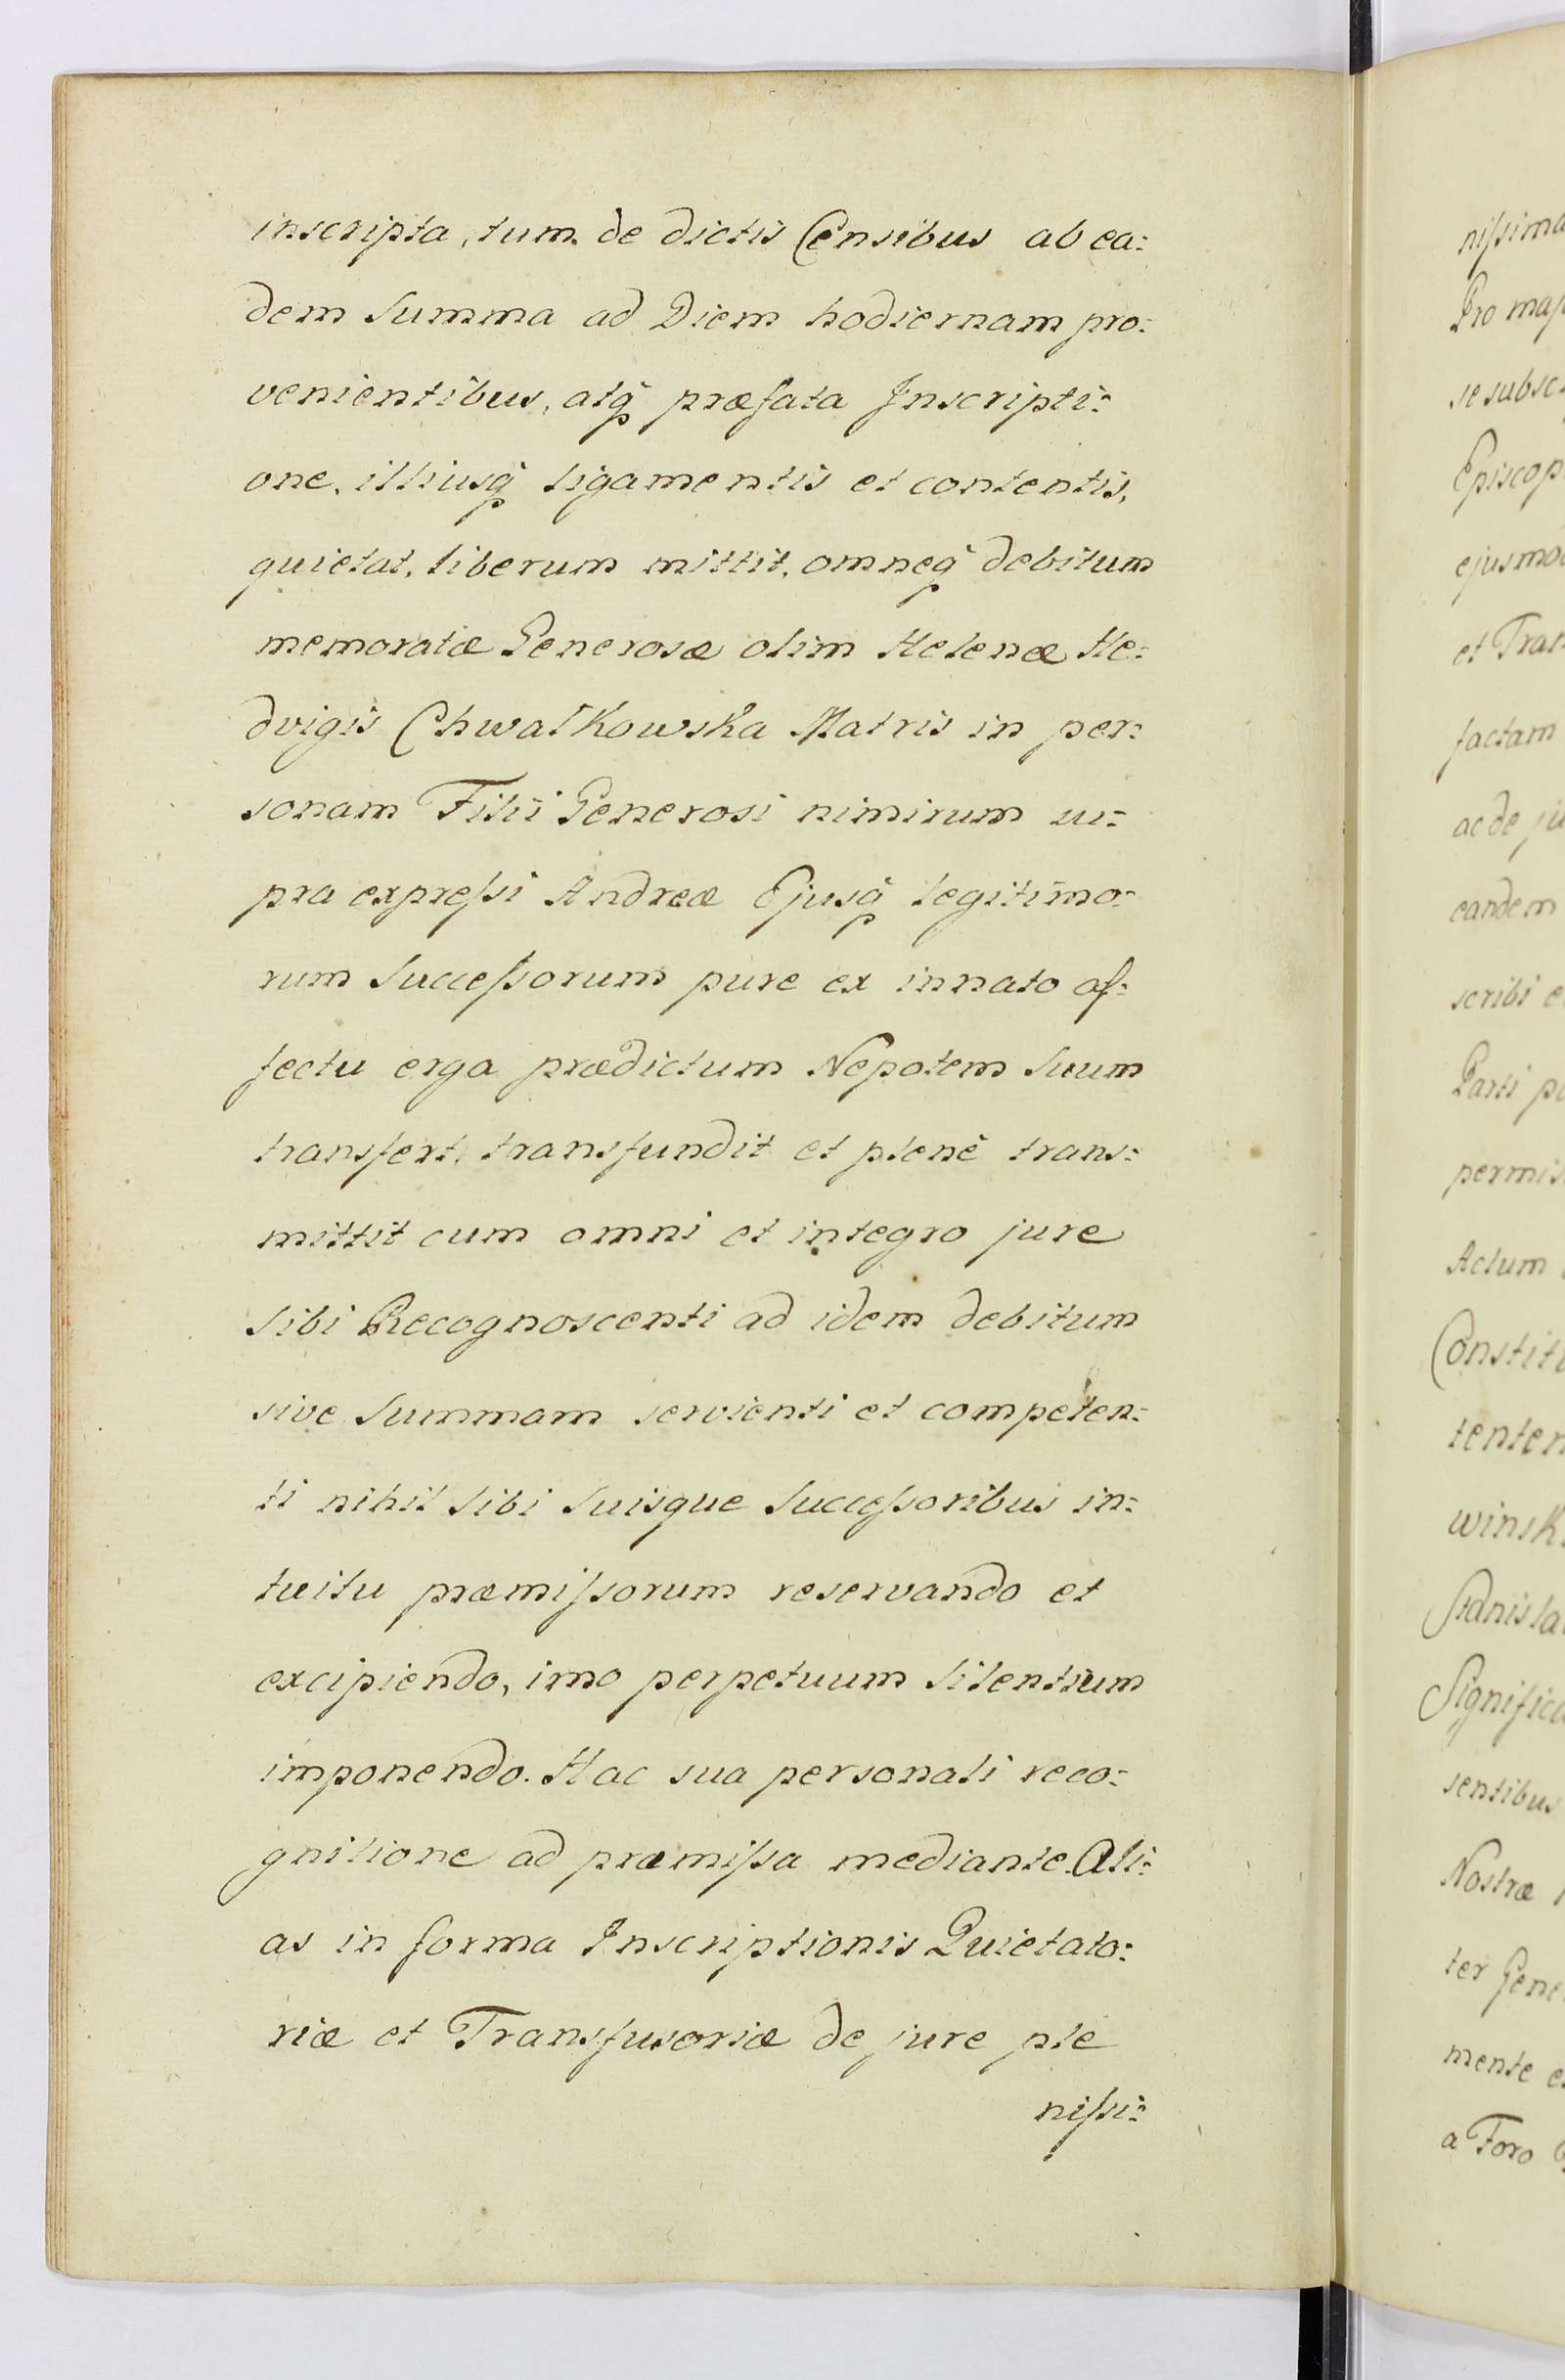 inscripta, tum de dictis Censibus ab ea:
dem Summa ad Diem hodiernam pro:
venientibus, atq́ præfata Inscripti:
one, illiusq́ ligamentis et contentis,
quietat, liberum mittit, omneq́ debitum
memoratæ Generosæ olim Helenæ He:
dvigis Chwałkowska Matris in per:
sonam Filii Generosi nimirum su:
pra expreſsi Andreæ Ejusq́ legitimo:
rum Succeſsorum pure ex innato af:
fectu erga prædictum Nepotem Suum
transfert, transfundit et plenè trans:
mittit cum omni et integro jure
Sibi Recognoscenti ad idem debitum
sive Summam servienti et competen:
ti nihil Sibi Suisque Succeſsoribus in:
tuitu præmiſsorum reservando et
excipiendo, imo perpetuum Silentium
imponendo. Hac sua personali reco:
gnitione ad præmiſsa mediante. Ali:
as in forma Inscriptionis Quietato:
riæ et Transfusoriæ de jure ple
niſsi:
niſsima
Pro maj
se subsc
Episcop
ejusmo
et Tran
factam
ac de ju
eandem
scribi e
Parti p
permis
Actum
Constit
tenten
winsk
Stanisla
Significa
sentibus
Nostræ
ter Gene
mente e
a Foro